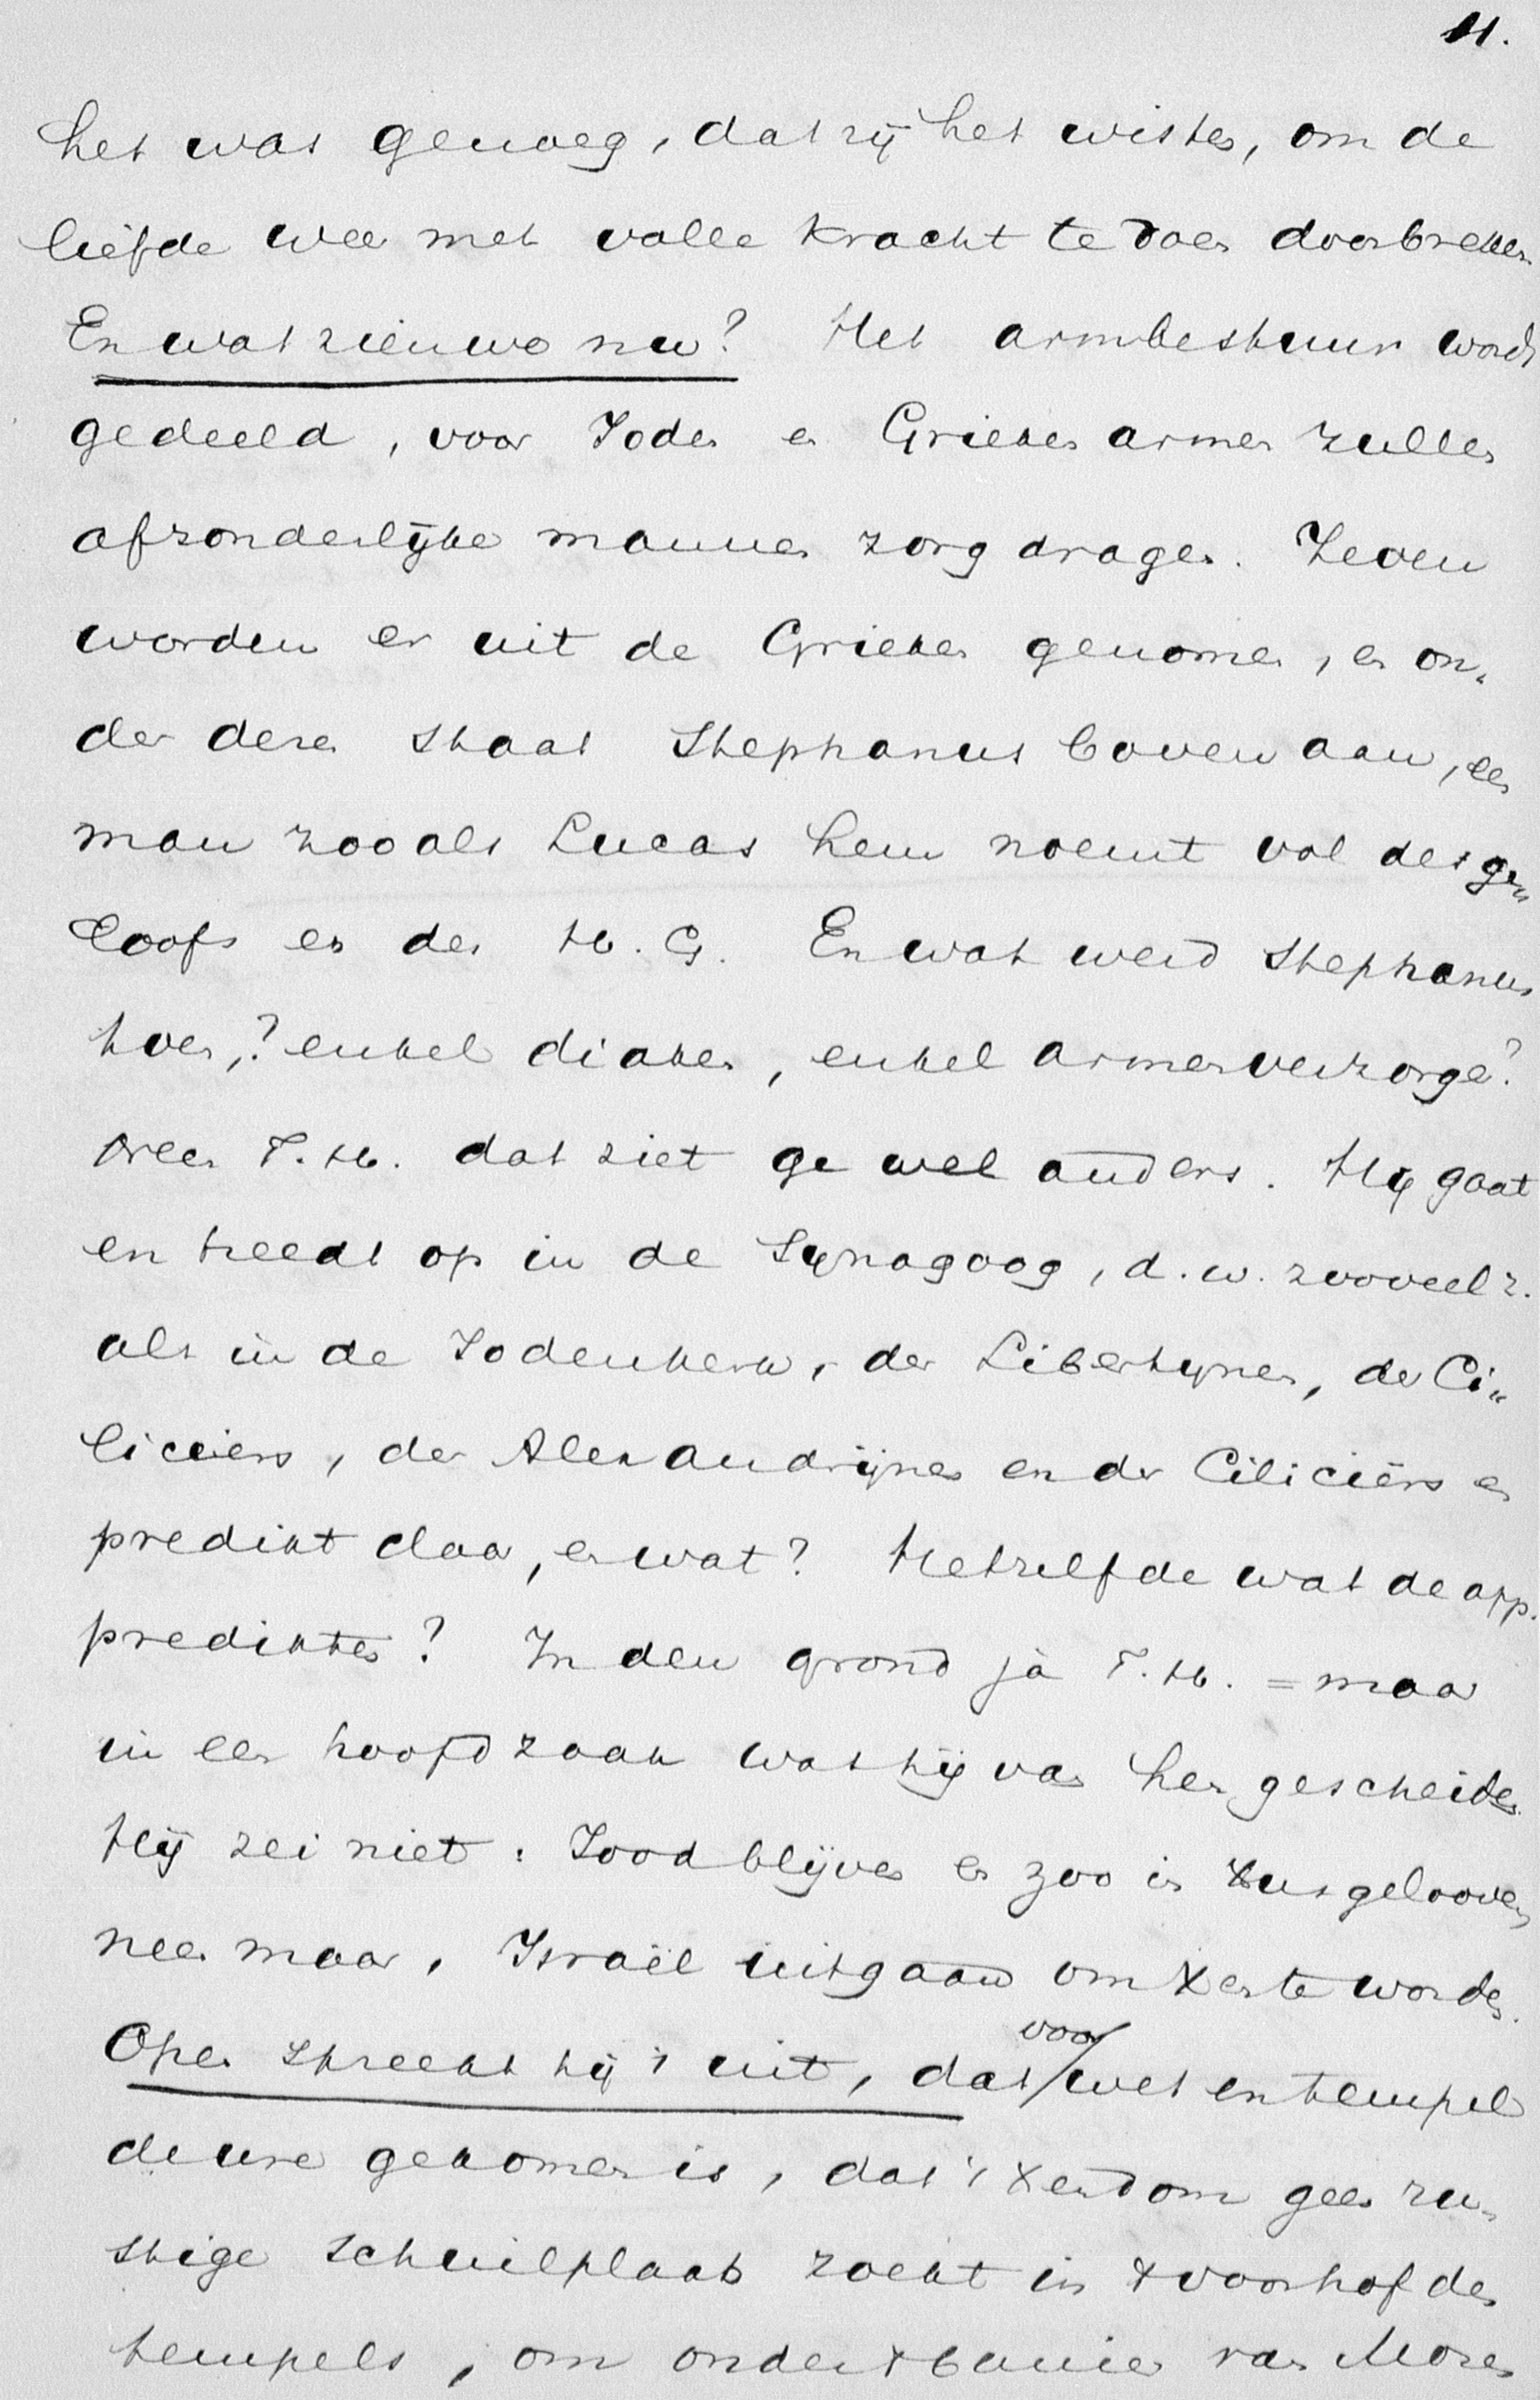 11.
het was genoeg, dat zij het wisten, om de
liefde weer met volle kracht te doen doorbreken
En wat zien we nu? Het armbestuur wordt
gedeeld, voor Joden en Grieken armen zullen
afzonderlijke mannen zorg dragen. Zeven
worden er uit de Grieken genomen, en on-
der dezen staat Stephanus bovenaan, een
man zooals Lucas hem noemt vol des ge-
loofs en des H. G. En wat werd Stephanus
toen,? enkel diaken, enkel armenverzorger?
Neen T. H. dat ziet ge wel anders. Hij gaat
en treedt op in de Synagoog, d. w. zooveel z.
als in de Jodenkerk, der Libertynen, der Ci-
liciers, der Alexandrijnen en der Ciliciërs en
predikt daar, en wat? Hetzelfde wat de app.
predikten? In den grond ja T. H. = maar
in een hoofdzaak was hij van hen gescheiden.
Hij zei niet: Jood blijven en zoo in Xus gelooven
neen maar, Israël uitgaan om Xen te worden.
Open spreekt hij 't uit, dat voor wet en tempel
de ure gekomen is, dat 't Xendom geen ru-
stige schuilplaats zoekt in 't voorhof des
tempels, om onder 't banier van Mozes